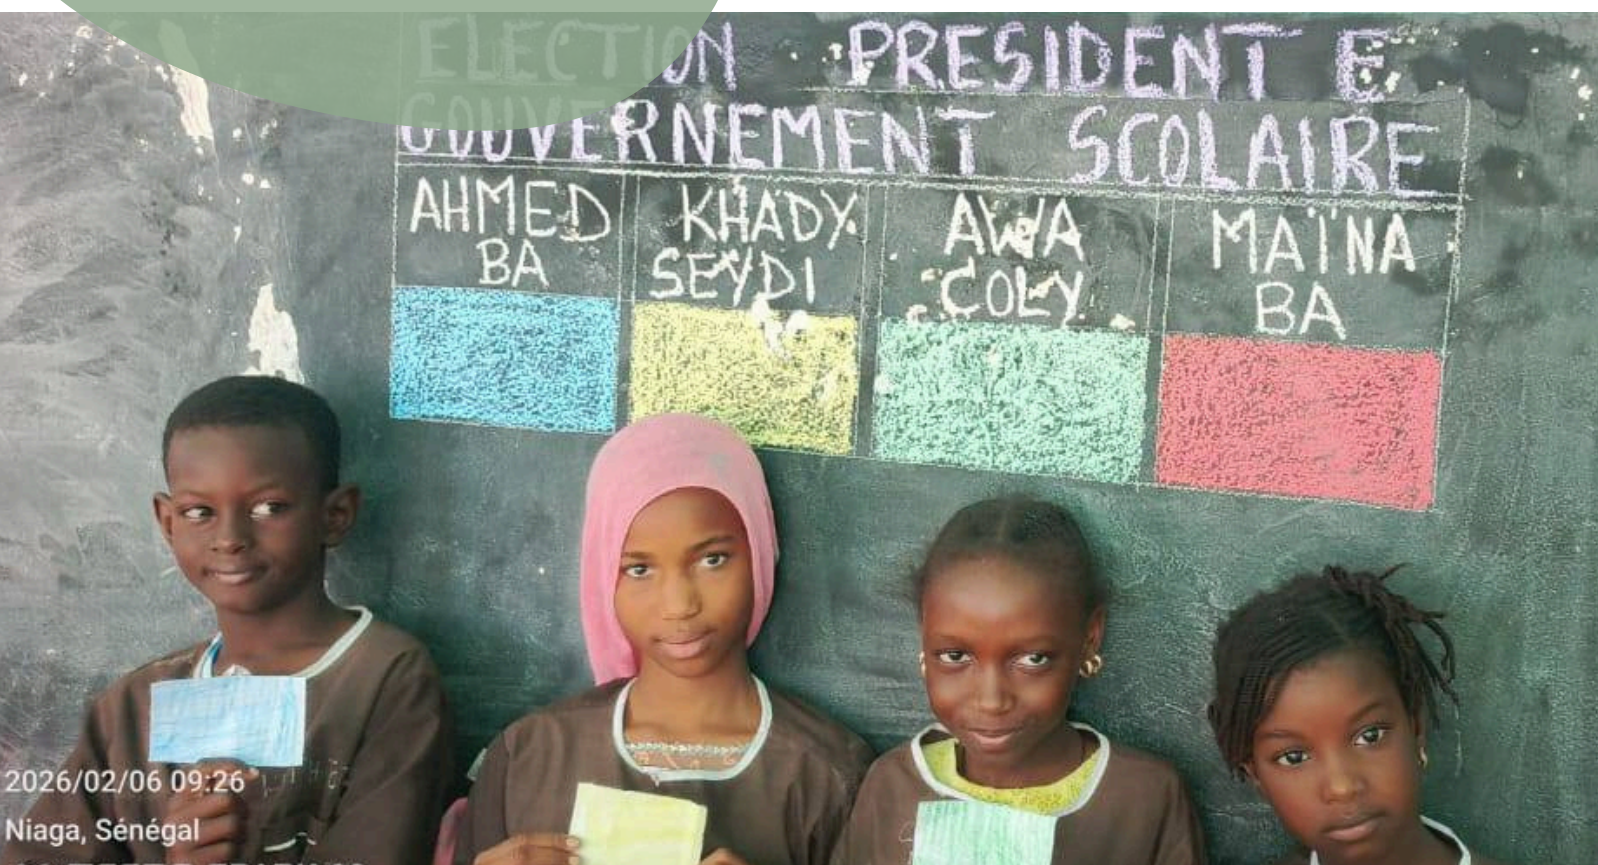 ELECTION PRESIDENT E
GOUVERNEMENT SCOLAIRE
AHMED
BA
KHADY
SEYDI
AWA
COLY
MAÏNA
BA
2026/02/06 09:26
Niaga, Sénégal